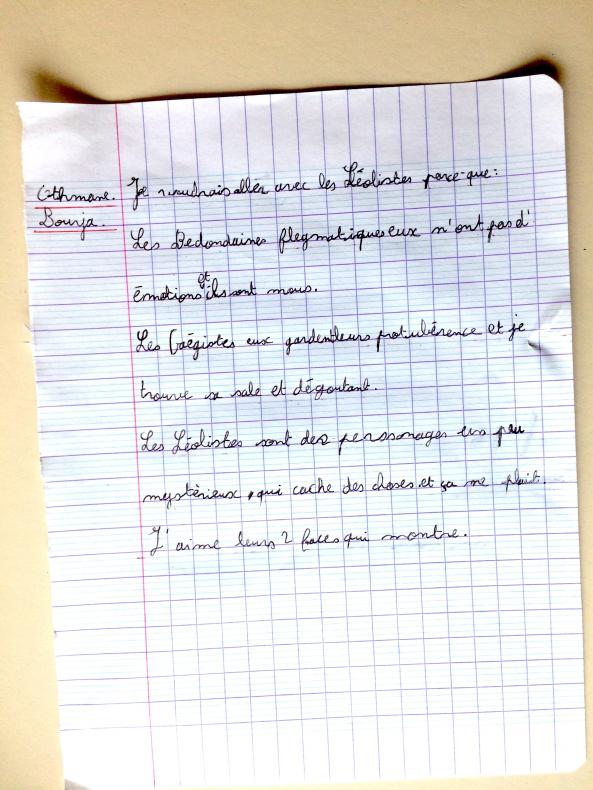 Othmane.
Bourja.
Je voudrais aller avec les Léolistes parce-que:
Les Dedondaines flegmatiques eux n'ont pas d'
émotions et ils sont mous.
Les Gaégistes eux gardent leurs protubérence et je
trouve sa sale et dégoutant.
Les Léolistes sont des personages un peu
mystèrieux, qui cache des choses et ça me plait.
J'aime leurs 2 faces qui montre.